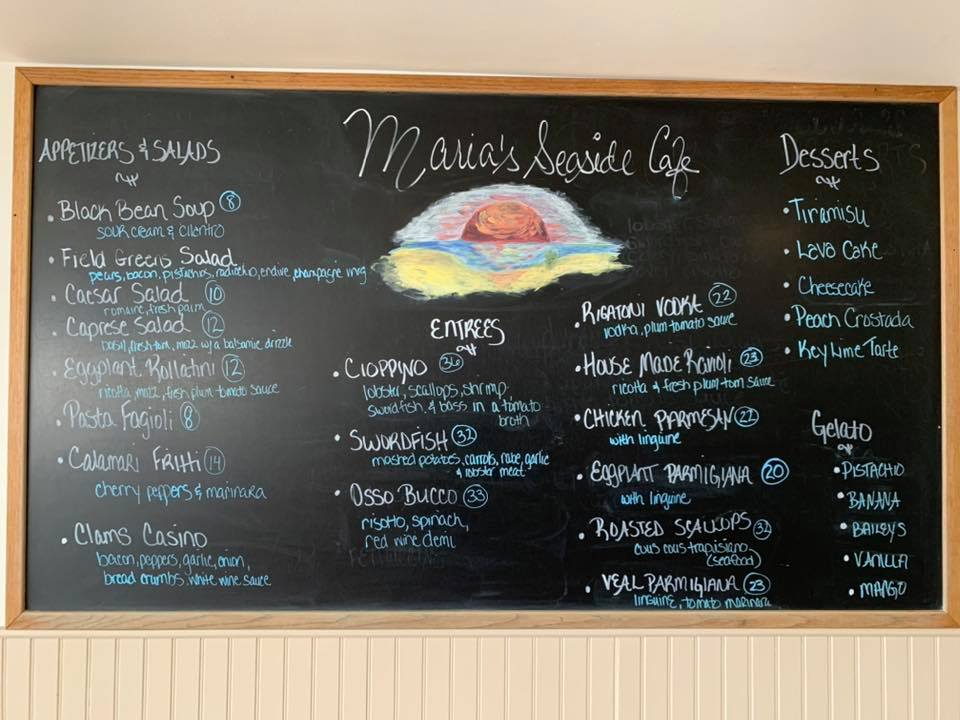 Maria's Seaside Cafe
APPETIZERS & SALADS
• Black Bean Soup 8
sour cream & cilentro
• Field Greens Salad
pears, bacon, pistachios, radicchio, endive, champagne vnrg
• Caesar Salad 10
romaine, fresh parm
• Caprese Salad 12
basil, fresh tom, mozz w/a balsamic drizzle
• Eggplant Rollatini 12
ricotta, mozz, fresh plum tomato sauce
• Pasta Fagioli 8
• Calamari Fritti 14
cherry peppers & marinara
• Clams Casino
bacon, peppers, garlic, onion,
bread crumbs, white wine sauce
ENTREES
• CIOPPINO 36
lobster, scallops, shrimp
swordfish, & bass in a tomato
broth
• SWORDFISH 32
mashed potatoes, carrots, rabe, garlic
& lobster meat
• OSSO BUCCO 33
risotto, spinach,
red wine demi
• RIGATONI VODKA 22
vodka, plum tomato sauce
• HOUSE MADE RAVIOLI 23
ricotta & fresh plum tom sauce
• CHICKEN PARMESAN 22
with linguine
• EGGPLANT PARMIGIANA 20
with linguine
• ROASTED SCALLOPS 32
cous cous trapisiano
(seafood)
• VEAL PARMIGIANA 23
linguine, tomato marinara
Desserts
• Tiramisu
• Lava Cake
• Cheesecake
• Peach Crostada
• Key Lime Tarte
Gelato
• PISTACHIO
• BANANA
• BAILEYS
• VANILLA
• MANGO